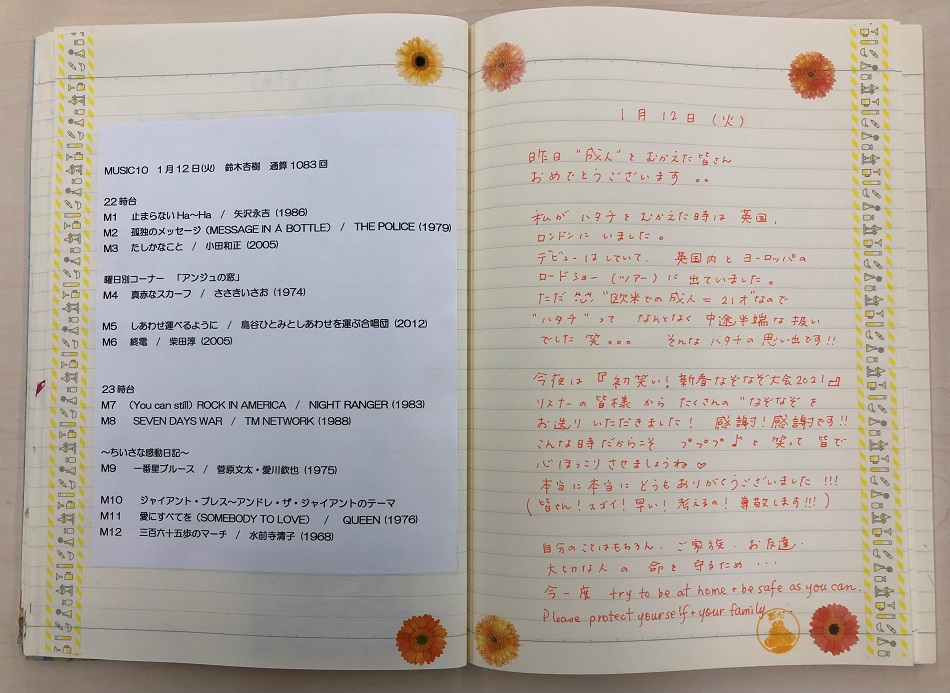 MUSIC10　1月12日(火)　鈴木杏樹　通算1083回
22時台
M1　止まらないHa～Ha　/　矢沢永吉 (1986)
M2　孤独のメッセージ (MESSAGE IN A BOTTLE)　/　THE POLICE (1979)
M3　たしかなこと　/　小田和正 (2005)
曜日別コーナー　「アンジュの窓」
M4　真赤なスカーフ　/　ささきいさお (1974)
M5　しあわせ運べるように　/　島谷ひとみとしあわせを運ぶ合唱団 (2012)
M6　終電　/　柴田淳 (2005)
23時台
M7　(You can still) ROCK IN AMERICA　/　NIGHT RANGER (1983)
M8　SEVEN DAYS WAR　/　TM NETWORK (1988)
～ちいさな感動日記～
M9　一番星ブルース　/　菅原文太・愛川欽也 (1975)
M10　ジャイアント・プレス～アンドレ・ザ・ジャイアントのテーマ
M11　愛にすべてを (SOMEBODY TO LOVE)　/　QUEEN (1976)
M12　三百六十五歩のマーチ　/　水前寺清子 (1968)
1月12日(火)
昨日 "成人" を むかえた 皆さん
おめでとうございます 。。
私が ハタチを むかえた時は 英国、
ロンドンに いました。
デビューはしていて、 英国内と ヨーロッパの
ロードショー (ツアー) に 出ていました。
ただ "欧米での成人 = 21才" なので
"ハタチ" って なんとなく 中途半端な扱い
でした 笑。。。 そんな ハタチの 思い出です!!
今夜は 『初笑い! 新春なぞなぞ大会2021』
リスナーの 皆様 から たくさんの "なぞなぞ を
お送り いただきました! 感謝! 感謝です!!
こんな時だからこそ プププ♪ と 笑って 皆で
心ほっこり させましょうね ♡
本当に本当に どうも ありがとうございました !!!
(皆さん! スゴイ! 早い! 考えるの! 尊敬します!!!)
自分のことはもちろん、ご家族、お友達、
大切な人 の 命を 守るため ・・・
今一度 try to be at home + be safe as you can.
Please protect yourself + your family